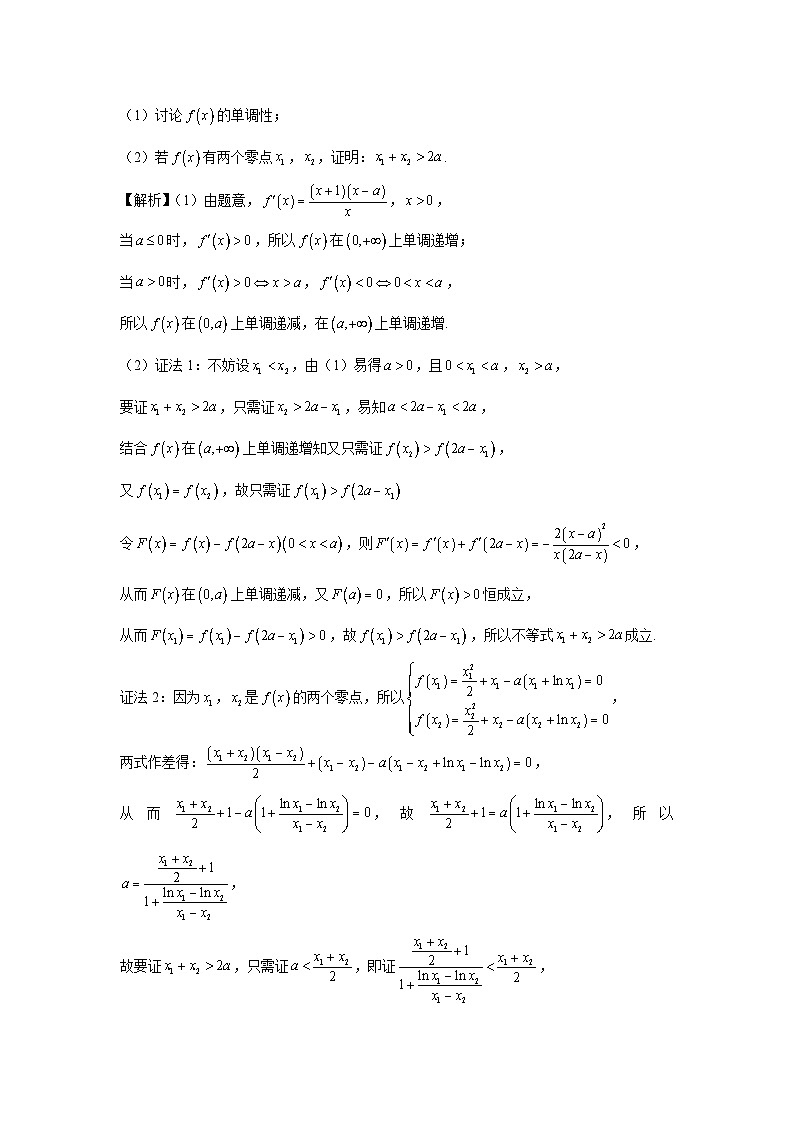 （1）讨论 f(x) 的单调性；
（2）若 f(x) 有两个零点 x₁，x₂，证明：x₁ + x₂ > 2a .
【解析】（1）由题意，f′(x) = \frac{(x+1)(x−a)}{x}，x > 0，
当 a ≤ 0 时，f′(x) > 0，所以 f(x) 在 (0,+∞) 上单调递增；
当 a > 0 时，f′(x) > 0 ⇔ x > a，f′(x) < 0 ⇔ 0 < x < a，
所以 f(x) 在 (0,a) 上单调递减，在 (a,+∞) 上单调递增.
（2）证法 1：不妨设 x₁ < x₂，由（1）易得 a > 0，且 0 < x₁ < a，x₂ > a，
要证 x₁ + x₂ > 2a，只需证 x₂ > 2a − x₁，易知 a < 2a − x₁ < 2a，
结合 f(x) 在 (a,+∞) 上单调递增知又只需证 f(x₂) > f(2a − x₁)，
又 f(x₁) = f(x₂)，故只需证 f(x₁) > f(2a − x₁)
令 F(x) = f(x) − f(2a − x)(0 < x < a)，则 F′(x) = f′(x) + f′(2a − x) = −\frac{2(x−a)²}{x(2a−x)} < 0，
从而 F(x) 在 (0,a) 上单调递减，又 F(a) = 0，所以 F(x) > 0 恒成立，
从而 F(x₁) = f(x₁) − f(2a − x₁) > 0，故 f(x₁) > f(2a − x₁)，所以不等式 x₁ + x₂ > 2a 成立.
证法 2：因为 x₁，x₂ 是 f(x) 的两个零点，所以 \begin{cases} f(x₁) = \frac{x₁²}{2} + x₁ − a(x₁ + ln x₁) = 0 \\ f(x₂) = \frac{x₂²}{2} + x₂ − a(x₂ + ln x₂) = 0 \end{cases}，
两式作差得：\frac{(x₁+x₂)(x₁−x₂)}{2} + (x₁ − x₂) − a(x₁ − x₂ + ln x₁ − ln x₂) = 0，
从而 \frac{x₁+x₂}{2} + 1 − a(1 + \frac{ln x₁ − ln x₂}{x₁ − x₂}) = 0，故 \frac{x₁+x₂}{2} + 1 = a(1 + \frac{ln x₁ − ln x₂}{x₁ − x₂})，所以
a = \frac{\frac{x₁+x₂}{2} + 1}{1 + \frac{ln x₁ − ln x₂}{x₁ − x₂}}，
故要证 x₁ + x₂ > 2a，只需证 a < \frac{x₁+x₂}{2}，即证 \frac{\frac{x₁+x₂}{2} + 1}{1 + \frac{ln x₁ − ln x₂}{x₁ − x₂}} < \frac{x₁+x₂}{2}，